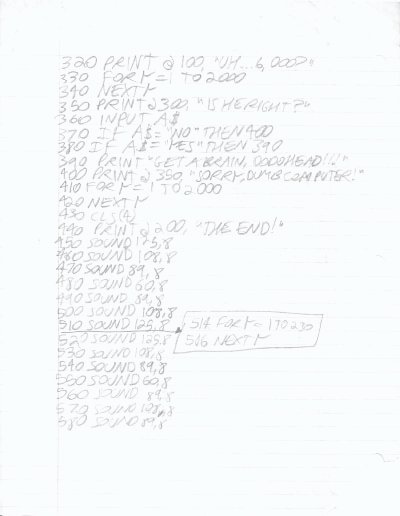 320 PRINT @ 100, "UH...6,000?"
330 FOR Y=1 TO 2000
340 NEXT Y
350 PRINT @ 300, "IS HE RIGHT?"
360 INPUT A$
370 IF A$="NO" THEN 400
380 IF A$="YES" THEN 390
390 PRINT "GET A BRAIN, DODOHEAD!!!"
400 PRINT @ 350, "SORRY, DUMB COMPUTER!"
410 FOR Y=1 TO 2000
420 NEXT Y
430 CLS(4)
440 PRINT @ 200, "THE END!"
450 SOUND 125,8
460 SOUND 108,8
470 SOUND 89,8
480 SOUND 60,8
490 SOUND 89,8
500 SOUND 108,8
510 SOUND 125,8
514 FOR Y=1 TO 230
516 NEXT Y
520 SOUND 125,8
530 SOUND 108,8
540 SOUND 89,8
560 SOUND 60,8
560 SOUND 89,8
570 SOUND 108,8
580 SOUND 89,8